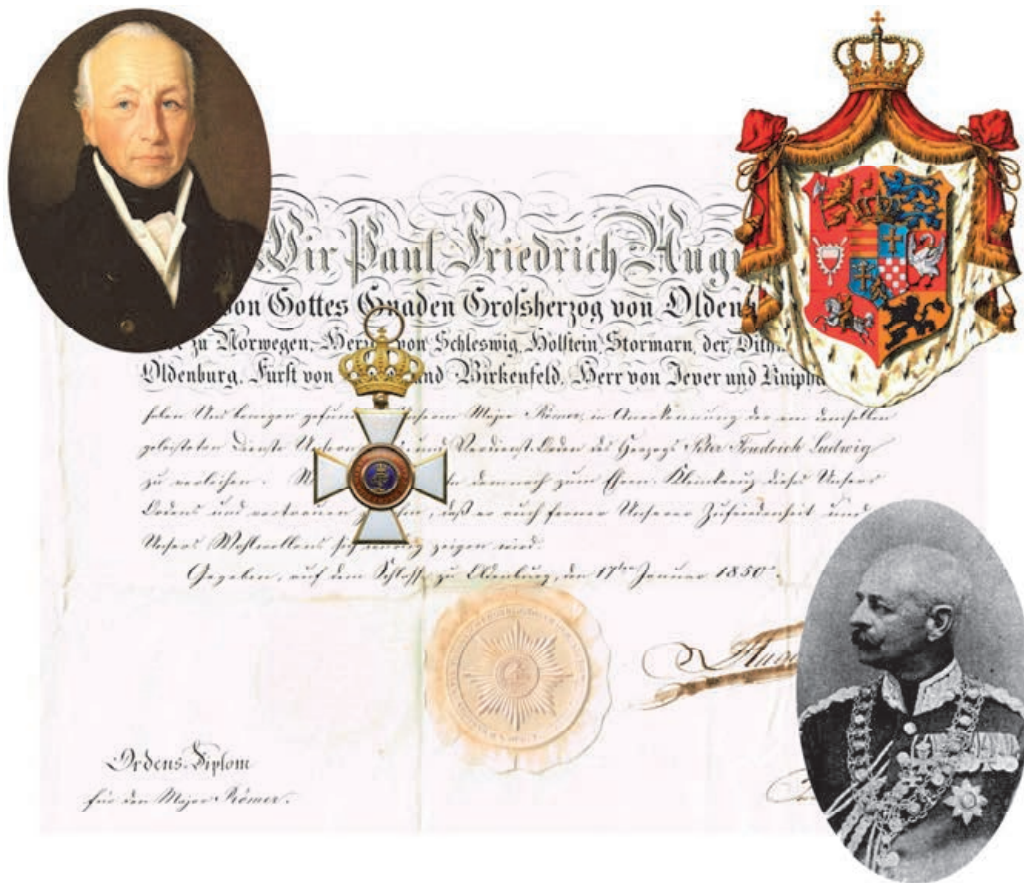 Wir Paul Friedrich Augu
von Gottes Gnaden Großherzog von Oldenb
zu Norwegen, Herzog von Schleswig, Holstein, Stormarn, der Dithm
Oldenburg, Fürst von und Birkenfeld, Herr von Jever und Kniph
haben Uns bewogen gefun Major Römer, in Anerkennung der von demselben
geleisteten Dienste Unsern und Verdienst-Orden des Herzogs Peter Friedrich Ludwig
zu verleihen. demnach zum Ehren-Kleinkreuz dieses Unsers
Ordens und vertrauen , daß er auch ferner Unserer Zufriedenheit und
Unsers Wohlwollens sich würdig zeigen wird.
Gegeben, auf dem Schlosse zu Oldenburg, den 17ten Januar 1850.
Ordens-Diplom
für den Major Römer.